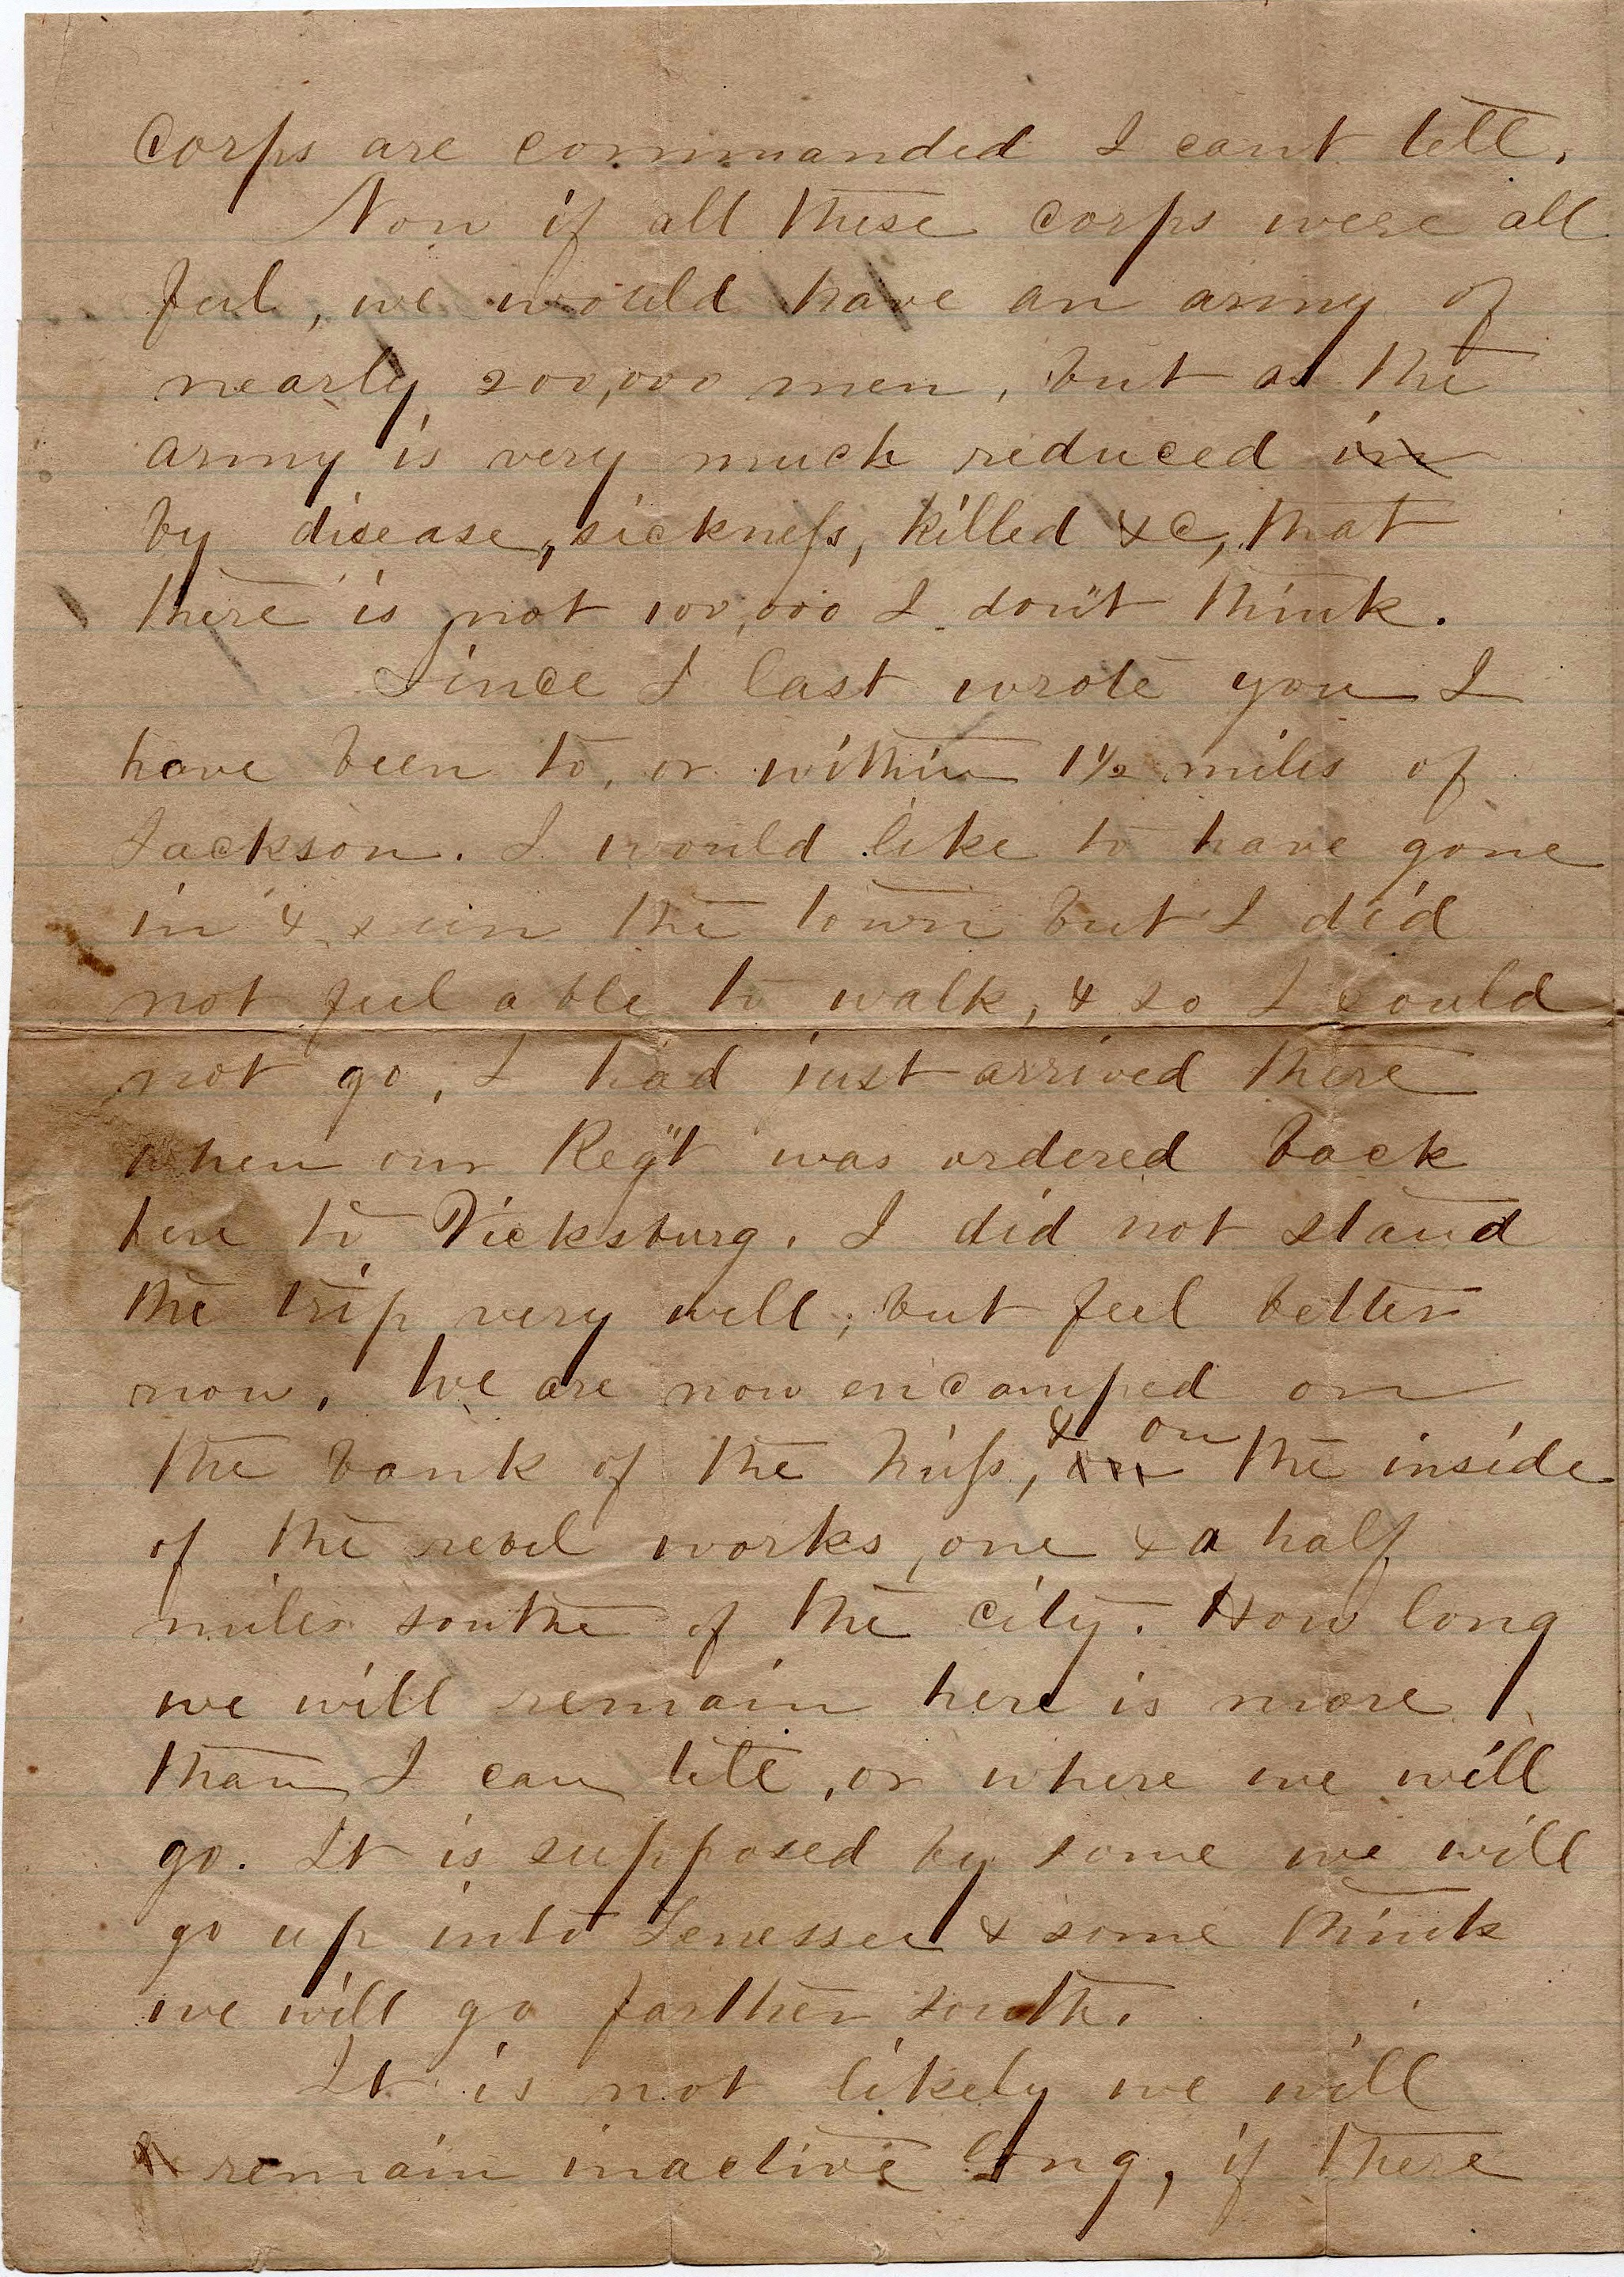 corps are commanded I cant tell.
Now if all these corps were all
ful, we would have an army of
nearly 200,000 men, but as the
army is very much reduced in
by disease, sickness, killed &c, that
there is not 100,000 I don't think.
Since I last wrote you I
have been to, or within 1½ miles of
Jackson. I would like to have gone
in & seen the town but I did
not feel able to walk, & so I could
not go. I had just arrived there
when our Reg't was ordered back
here to Vicksburg. I did not stand
the trip very well, but feel better
now. We are now encamped on
the bank of the Miss, & on the inside
of the rebel works, one & a half
miles southe of the city. How long
we will remain here is more
than I can tell, or where we will
go. It is supposed by some we will
go up into Tenessee & some think
we will go farther south.
It is not likely we will
remain inactive long, if there